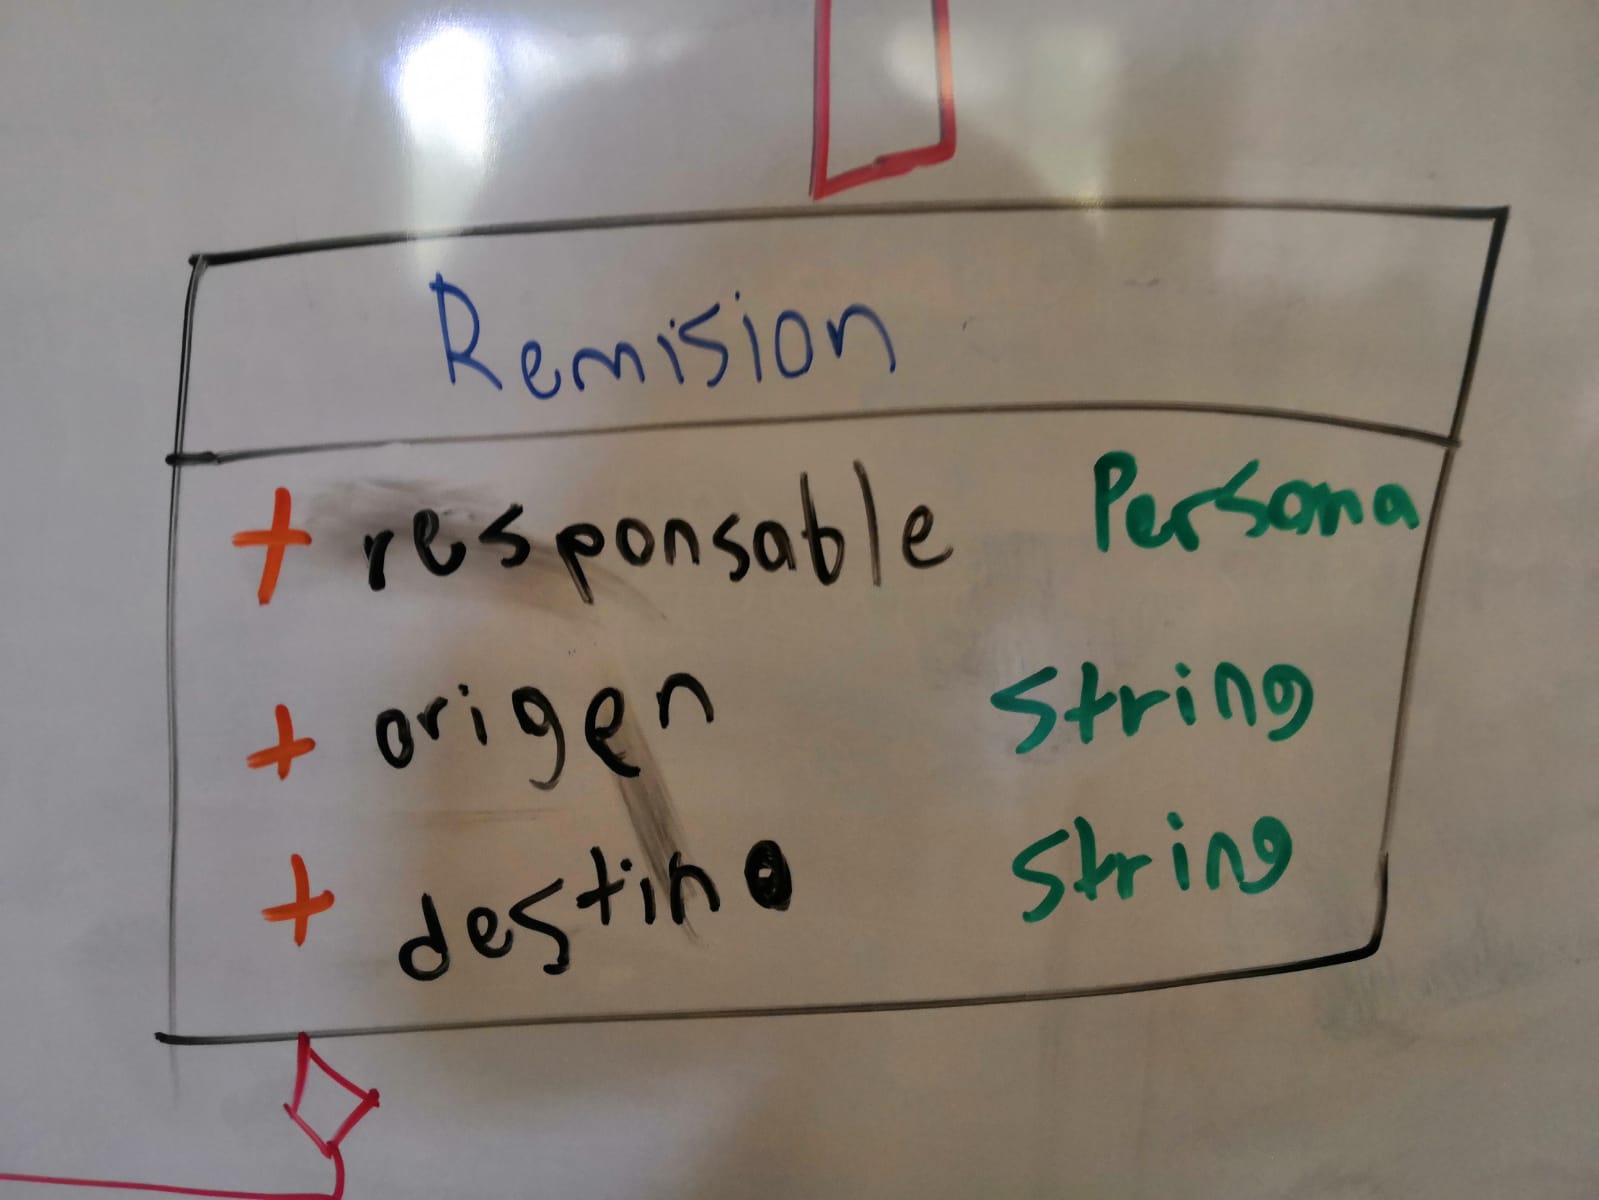 Remision
+ responsable Persona
+ origen String
+ destino String